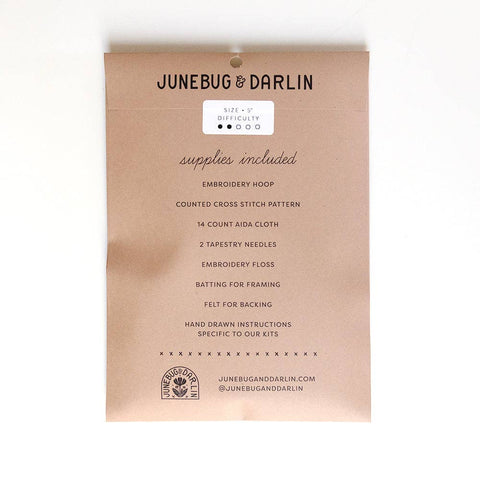 JUNEBUG & DARLIN
DIFFICULTY
supplies included
EMBROIDERY HOOP
COUNTED CROSS STITCH PATTERN
14 COUNT AIDA CLOTH
2 TAPESTRY NEEDLES
EMBROIDERY FLOSS
BATTING FOR FRAMING
FELT FOR BACKING
HAND DRAWN INSTRUCTIONS
SPECIFIC TO OUR KITS
x x x x x x x x x x x x x x x x x x x
JUNEBUG & DARLIN
JUNEBUGANDDARLIN.COM
@JUNEBUGANDDARLIN